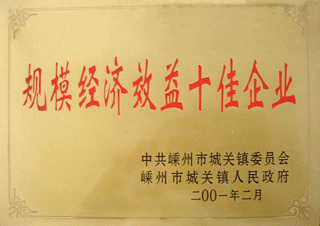 规模经济效益十佳企业
中共嵊州市城关镇委员会
嵊州市城关镇人民政府
二00一年二月